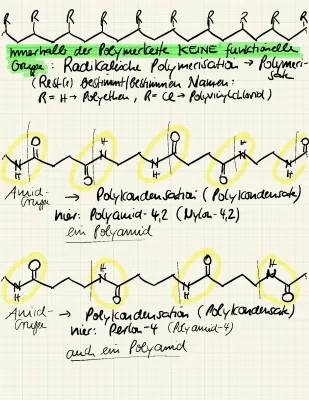 R R R R R R R R
innerhalb der Polymerkette KEINE funktionelle
Gruppe: Radikalische Polymerisation → Polymeri-
sate
(Rest(e) bestimmt/bestimmen Namen:
R = H → Polyethen, R = Cl → Polyvinylchlorid)
Amid-
Gruppe
→ Polykondensation (Polykondensate)
hier: Polyamid-4,2 (Nylon-4,2)
ein Polyamid
Amid-
Gruppe
→ Polykondensation (Polykondensate)
hier: Perlon-4 (Polyamid-4)
auch ein Polyamid